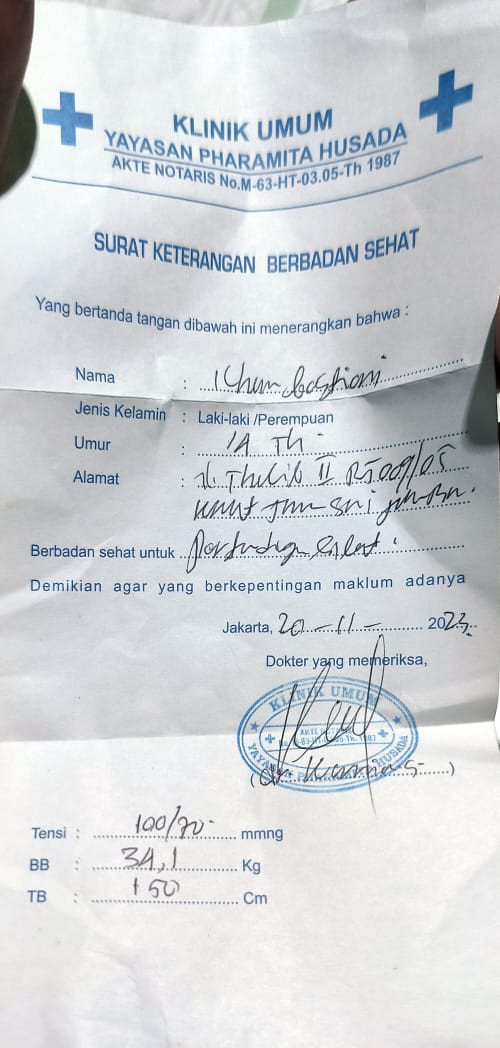 KLINIK UMUM
YAYASAN PHARAMITA HUSADA
AKTE NOTARIS No.M-63-HT-03.05-Th 1987
SURAT KETERANGAN BERBADAN SEHAT
Yang bertanda tangan dibawah ini menerangkan bahwa :
Nama :
Jenis Kelamin : Laki-laki /Perempuan
Umur : 14 Th
Alamat : II RT009/05
Berbadan sehat untuk
Demikian agar yang berkepentingan maklum adanya
Jakarta, 20-11- 2023
Dokter yang memeriksa,
KLINIK UMUM
AKTE NOTARIS
YAYASAN PHARAMITA HUSADA
(dr. Kurnia S.)
Tensi : 100/70 mmng
BB : 34,1 Kg
TB : 150 Cm